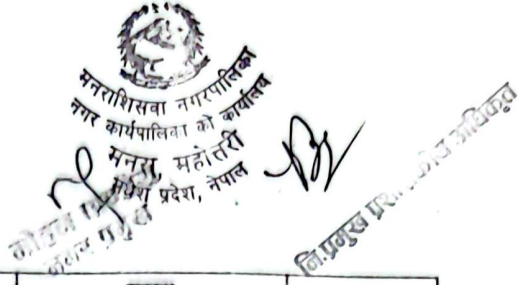 मनराशिसवा नगरपालिका
नगर कार्यपालिका को कार्यालय
मनरा, महोत्तरी
मधेश प्रदेश, नेपाल
नगर प्रमुख
नि.प्रमुख प्रशासकीय अधिकृत